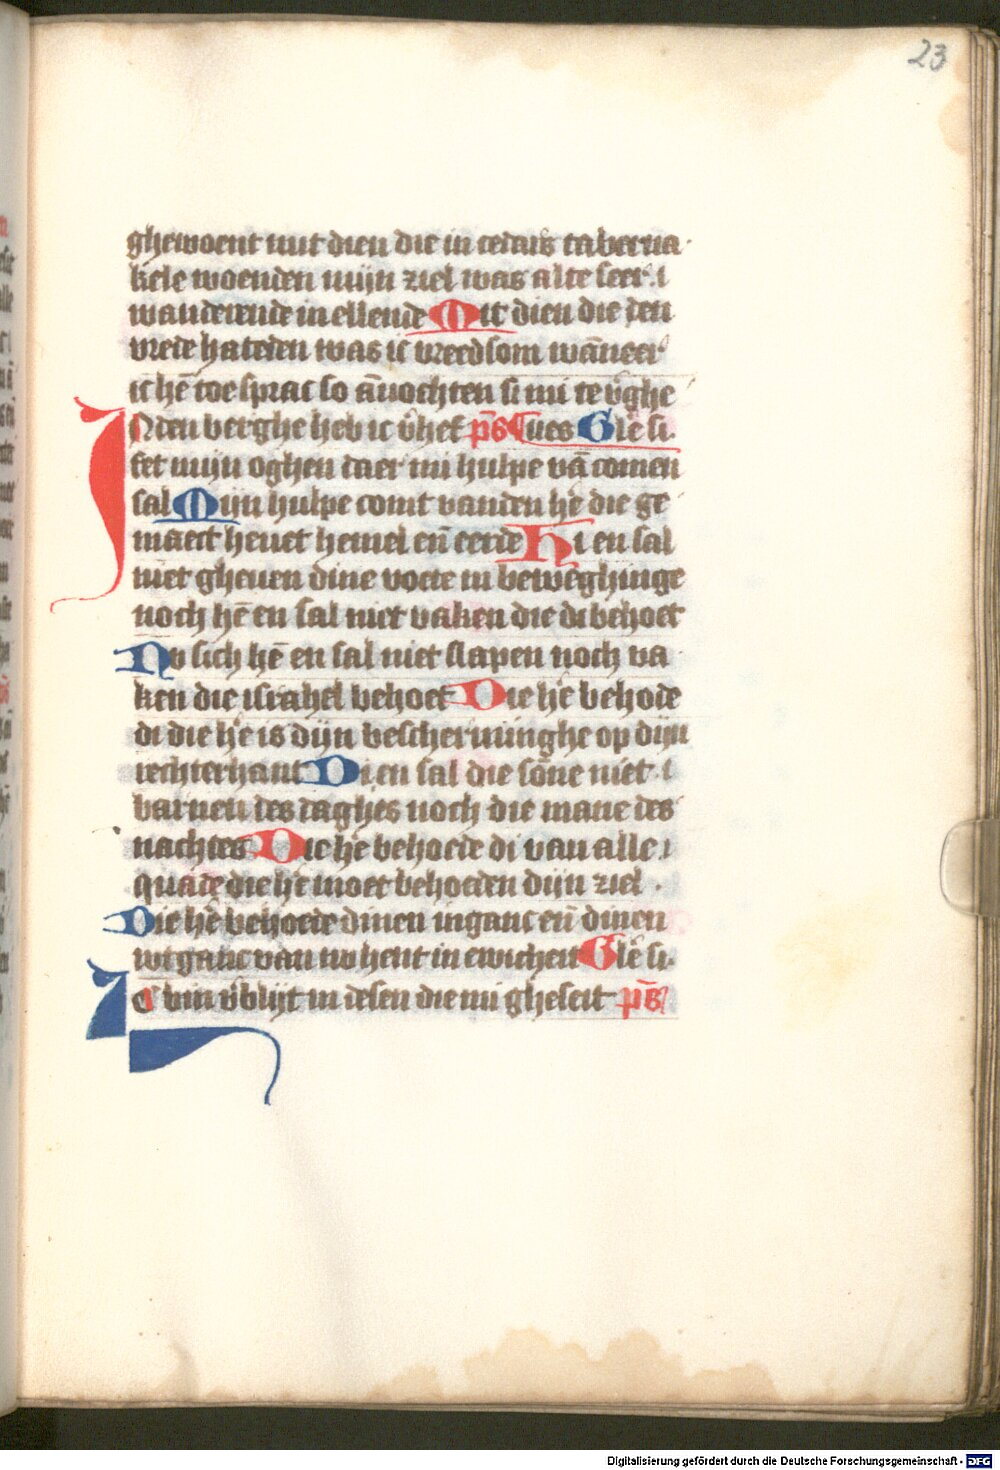 23
ghewoent mit dien die in cedars taberna
kele woenden mijn ziel was alte seer .i
wanderende in ellende Mit dien die den
vrede hateden was ic vreedsom wāneer
ic hē toe sprac so āuochten si mi te v̄ghe
INden berghe heb ic v̄hef ps̄ ues Glē si.
fet mijn oghen daer mi hulpe vā comen
sal Mijn hulpe comt vanden hē die ge
maect heuet hemel eñ eerde Hi en sal
niet gheuen dine voete in beweghinge
noch hē en sal niet vaken die di behoet
Nv sich hē en sal niet slapen noch va
ken die israhel behoet Die hē behode
di die hē is dijn beschermĩnghe op dijn
rechterhant Di en sal die sōne niet .i
barnen des daghes noch die mane des
nachtes Die hē behoede di van alle .i
quade die hē moet behoeden dijn ziel .
Die hē behoede dinen inganc eñ dinen
wtganc van nv hent in ewicheit Glē si.
IC bin v̄blijt in desen die mi gheseit ps̄
Digitalisierung gefördert durch die Deutsche Forschungsgemeinschaft - DFG